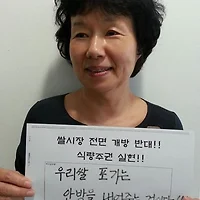 쌀시장 전면 개방 반대!!
식량주권 실현!!
우리쌀 포기는
안방을 내어주는